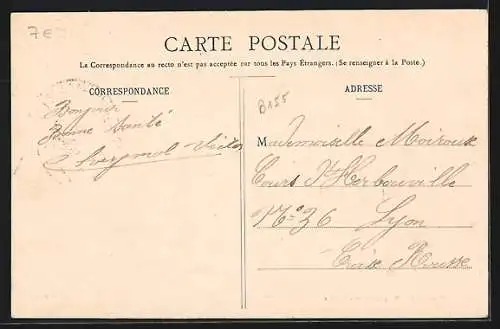 7E
CARTE POSTALE
La Correspondance au recto n'est pas acceptée par tous les Pays Étrangers. (Se renseigner à la Poste.)
CORRESPONDANCE
ADRESSE
B155
Bonjour
Bonne Santé
Victor
Mademoiselle Moiroux
Cours d'Herbouville
No 36 Lyon
Croix Rousse